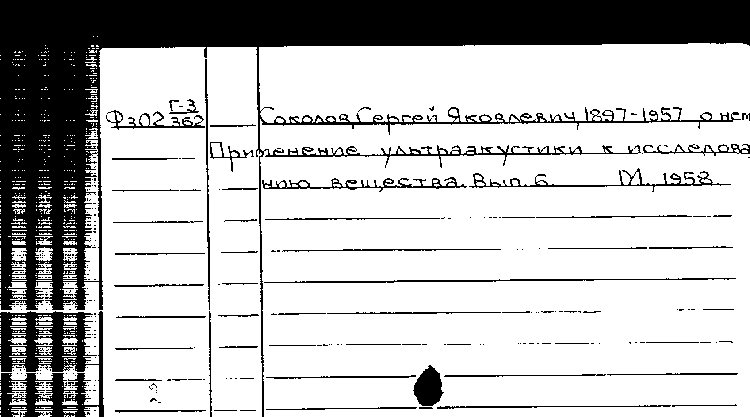 Ф302 Г-3/362 Соколов, Сергей Яковлевич, 1897-1957 о нем
Применение ультраакустики к исследова
нию вещества. Вып. 6. М., 1958.